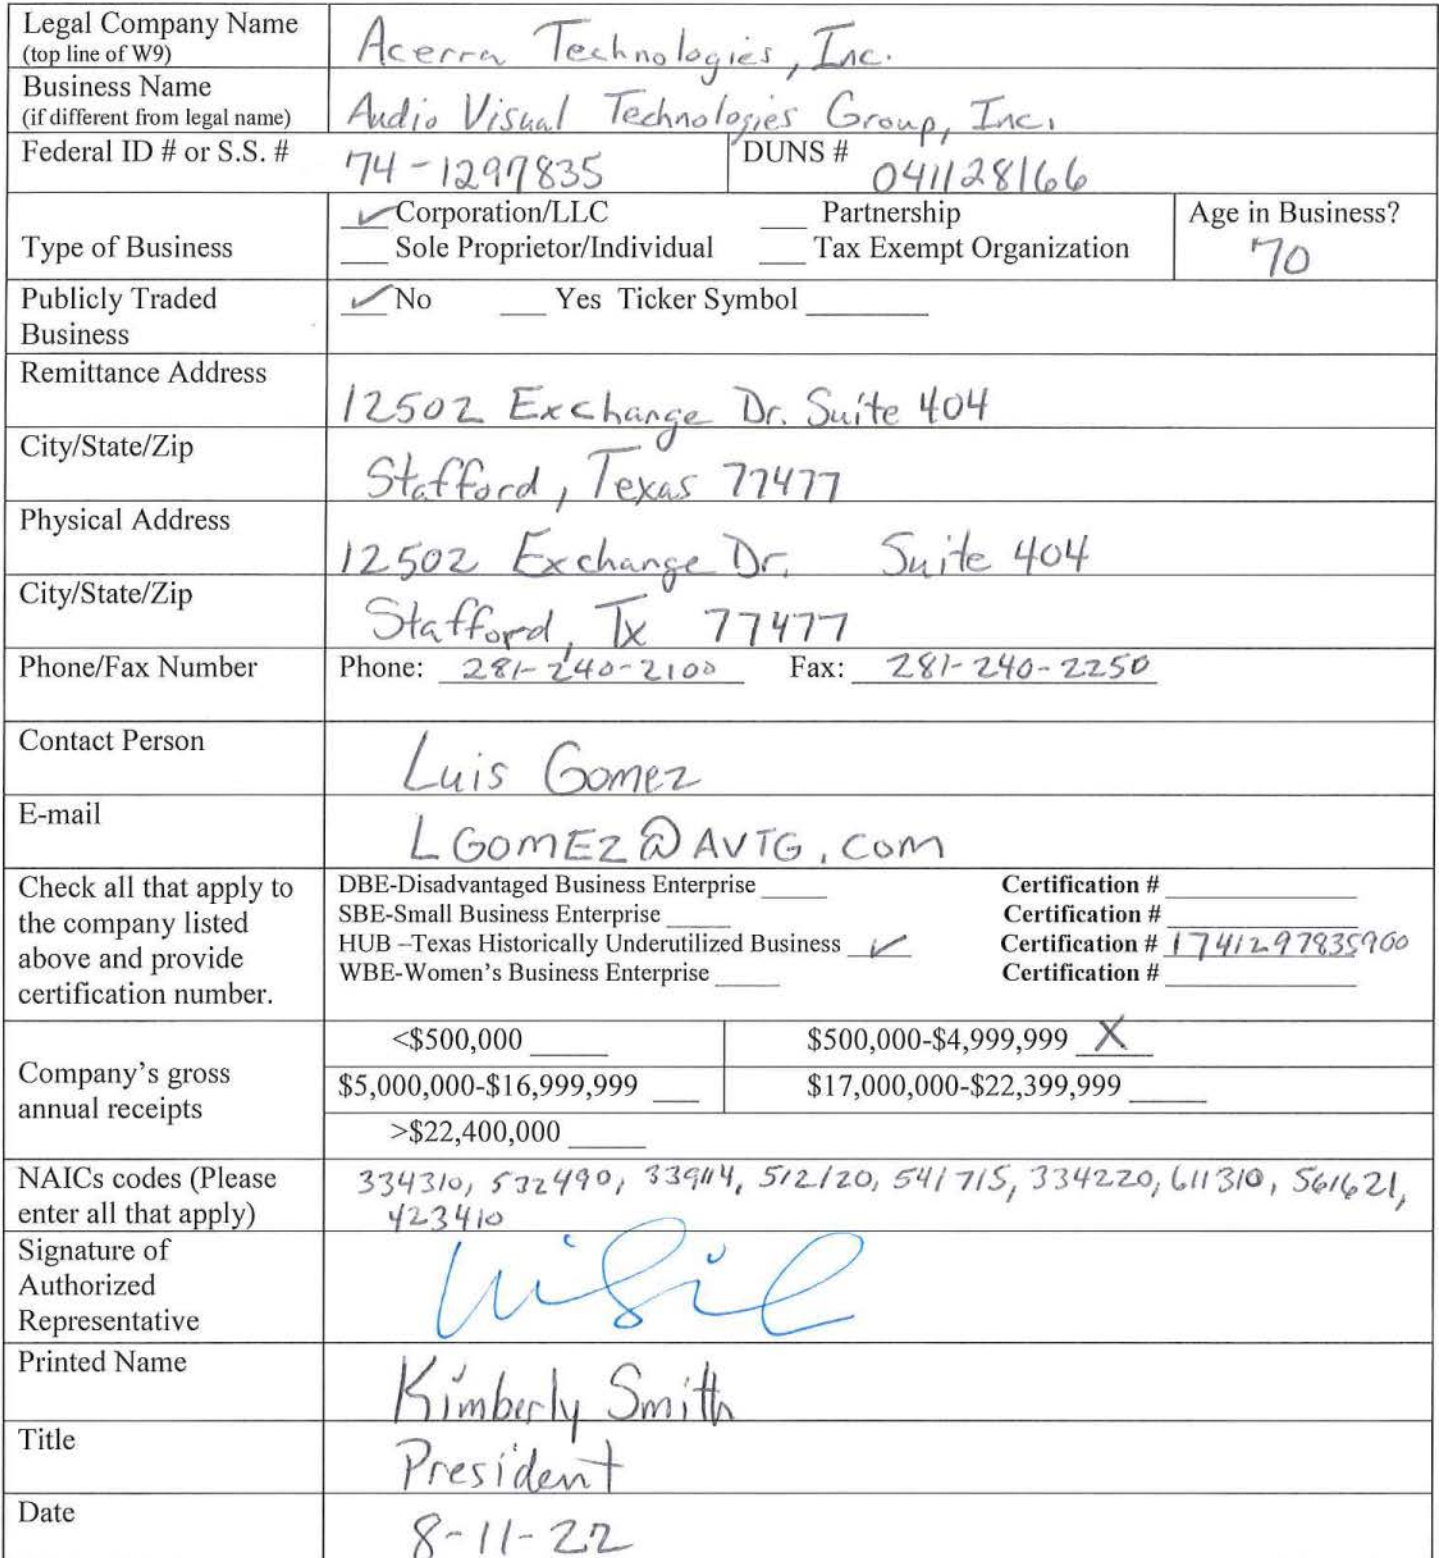 Legal Company Name
(top line of W9)
Acerra Technologies, Inc.
Business Name
(if different from legal name)
Audio Visual Technologies Group, Inc.
Federal ID # or S.S. # 74-1297835 DUNS # 041128166
Type of Business
✓ Corporation/LLC ___ Partnership
___ Sole Proprietor/Individual ___ Tax Exempt Organization
Age in Business?
70
Publicly Traded
Business
✓ No ___ Yes Ticker Symbol ___
Remittance Address
12502 Exchange Dr. Suite 404
City/State/Zip
Stafford, Texas 77477
Physical Address
12502 Exchange Dr. Suite 404
City/State/Zip
Stafford, Tx 77477
Phone/Fax Number Phone: 281-240-2100 Fax: 281-240-2250
Contact Person
Luis Gomez
E-mail
LGOMEZ@AVTG.com
Check all that apply to
the company listed
above and provide
certification number.
DBE-Disadvantaged Business Enterprise ___ Certification # ___
SBE-Small Business Enterprise ___ Certification # ___
HUB –Texas Historically Underutilized Business ✓ Certification # 1741297835900
WBE-Women's Business Enterprise ___ Certification # ___
Company's gross
annual receipts
<$500,000 ___ $500,000-$4,999,999 X
$5,000,000-$16,999,999 ___ $17,000,000-$22,399,999 ___
>$22,400,000 ___
NAICs codes (Please
enter all that apply)
334310, 532490, 339114, 512120, 541715, 334220, 611310, 561621,
423410
Signature of
Authorized
Representative
Printed Name
Kimberly Smith
Title
President
Date
8-11-22